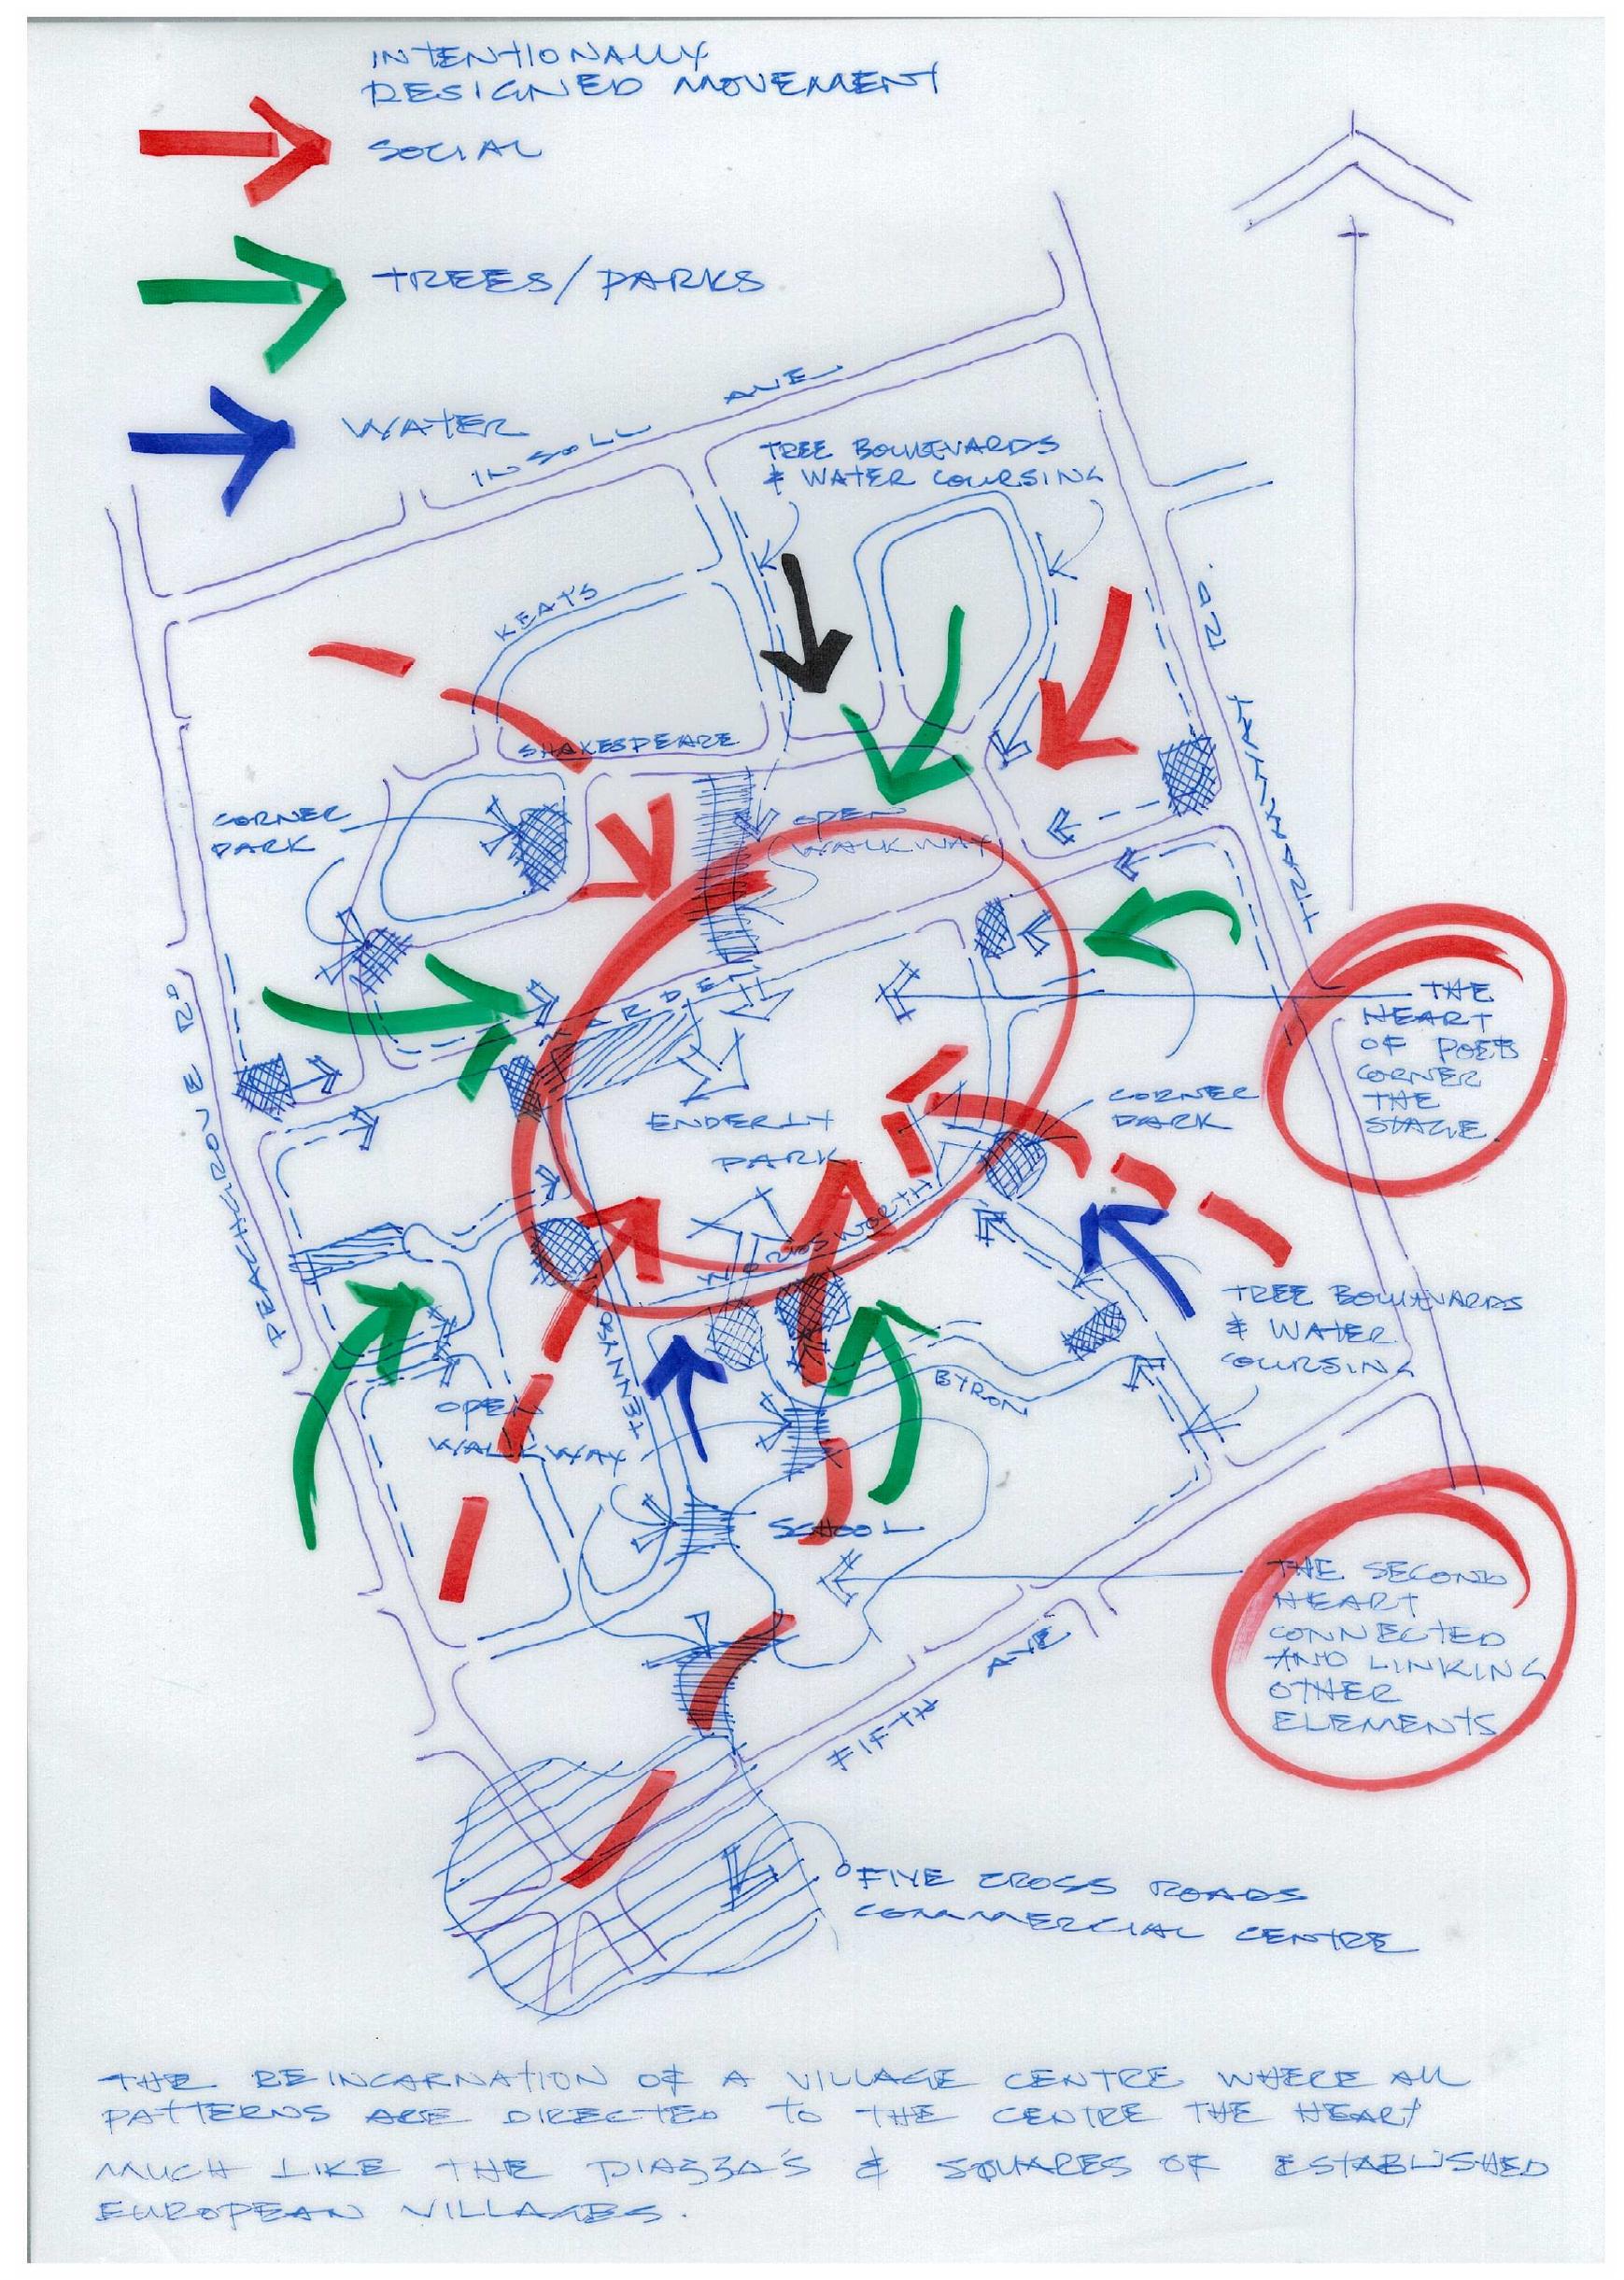 INTENTIONALLY
DESIGNED MOVEMENT
SOCIAL
TREES/PARKS
WATER
INSOLL AVE
TREE BOULEVARDS
& WATER COURSING
KEATS
SHAKESPEARE
CORNER
PARK
OPEN
WALKWAY
TAINMARK RD.
ARDEN
THE
HEART
OF POETS
CORNER
THE
STAGE.
ENDERLY
PARK
CORNER
PARK
WORDSWORTH
PEACHGROVE RD
TREE BOULEVARDS
& WATER
COURSING
TENNYSON
BYRON
OPEN
WALKWAY
SCHOOL
THE SECOND
HEART
CONNECTED
AND LINKING
OTHER
ELEMENTS
FIFTH AVE
FIVE CROSS ROADS
COMMERCIAL CENTRE
THE REINCARNATION OF A VILLAGE CENTRE WHERE ALL
PATTERNS ARE DIRECTED TO THE CENTRE THE HEART
MUCH LIKE THE PIAZZA'S & SQUARES OF ESTABLISHED
EUROPEAN VILLAGES.